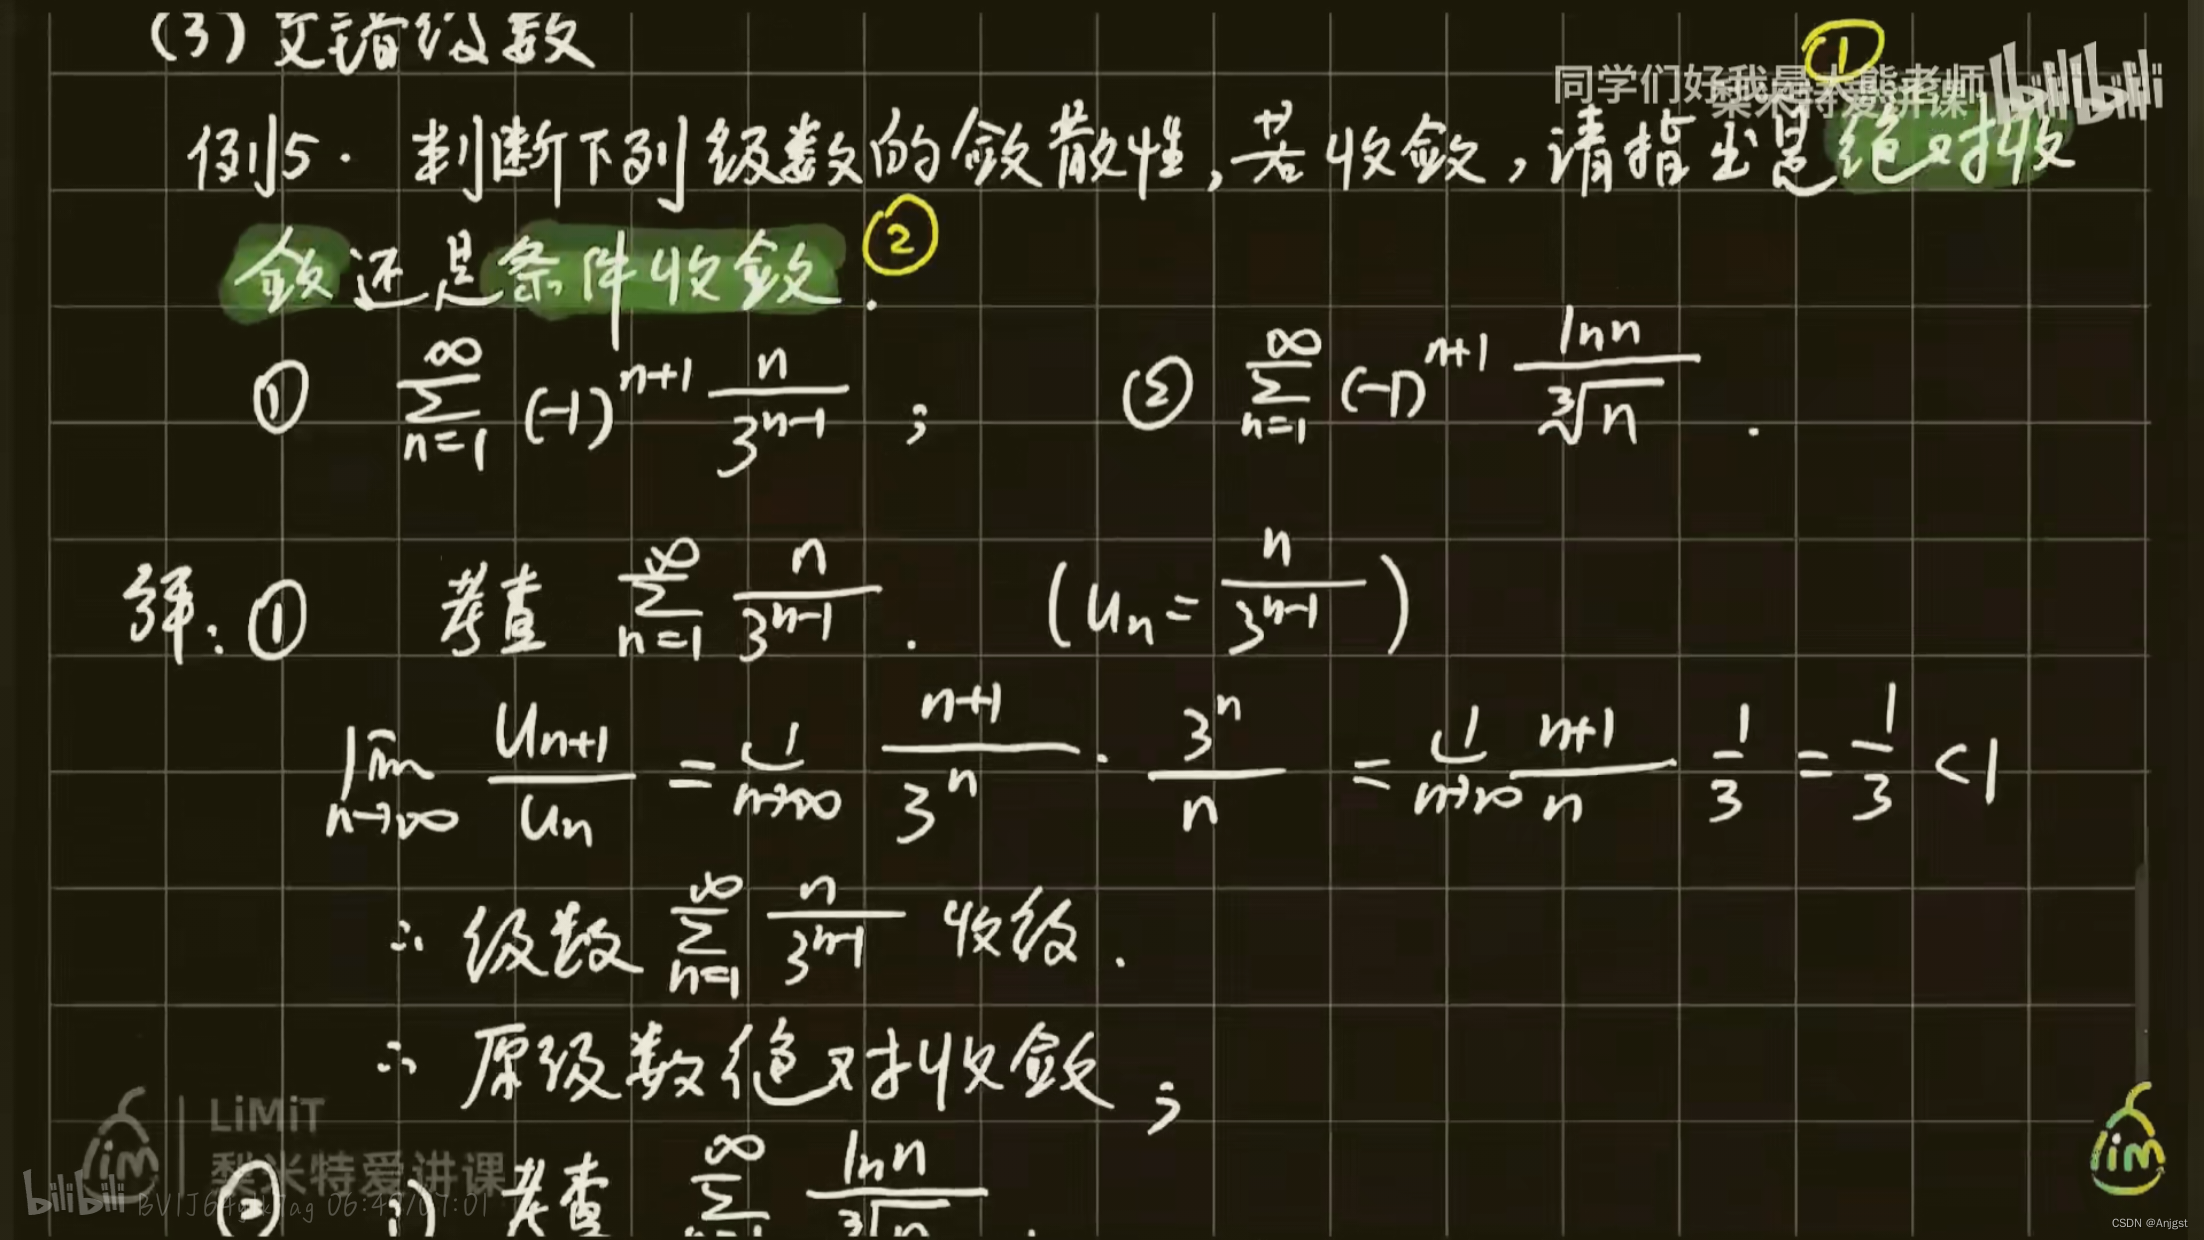 (3) 交错级数
①
同学们好我是大熊老师
梨米特爱讲课
bilibili
例5. 判断下列级数的敛散性,若收敛,请指出是绝对收
敛还是条件收敛. ②
① ∑_{n=1}^{∞} (-1)^{n+1} n/3^{n-1} ; ② ∑_{n=1}^{∞} (-1)^{n+1} lnn/∛n .
解: ① 考查 ∑_{n=1}^{∞} n/3^{n-1} . (u_n = n/3^{n-1})
lim_{n→∞} u_{n+1}/u_n = l_{n→∞} n+1/3^n · 3^n/n = l_{n→∞} n+1/n 1/3 = 1/3 < 1
∴ 级数 ∑_{n=1}^{∞} n/3^{n-1} 收级.
∴ 原级数绝对收敛;
LiMiT
梨米特爱讲课
② i) 考查 ∑_{n=1}^{∞} lnn/∛n .
bilibili
lim
CSDN @Anjgst